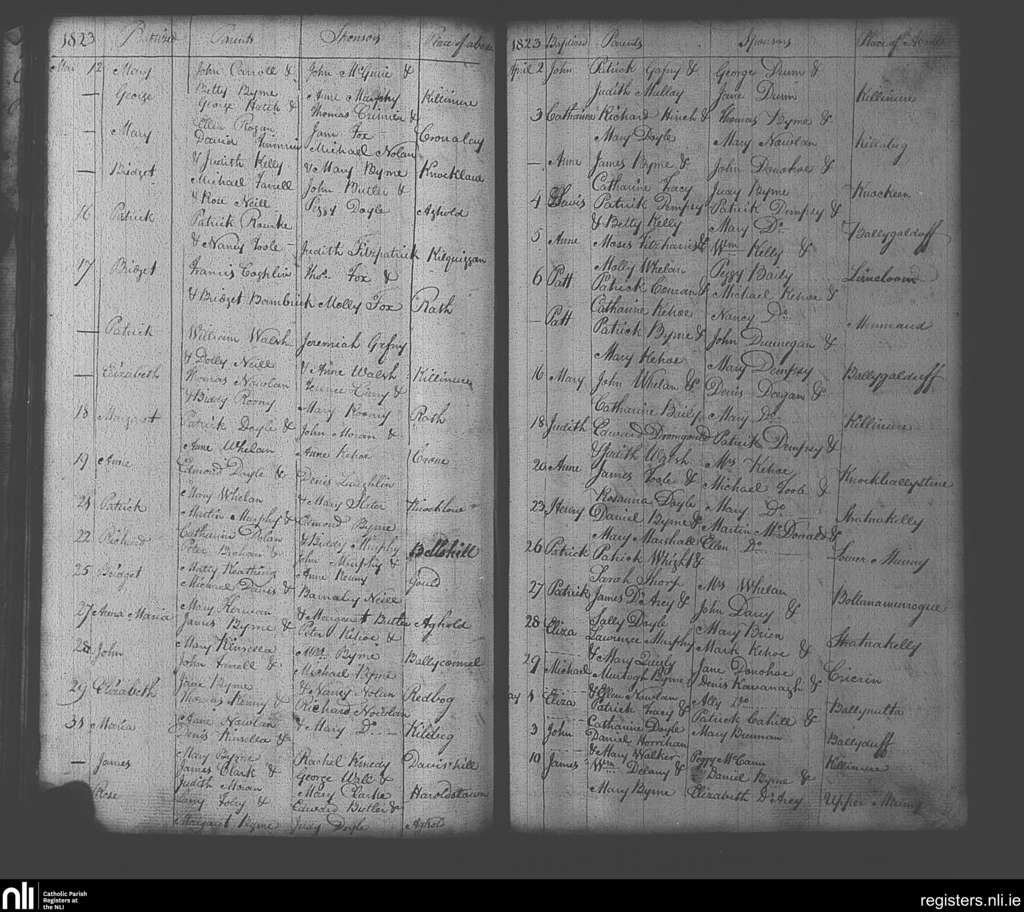 1823 Baptized Parents Sponsors Place of abode
Mar 12 Mary John Carroll & John McGuire &
Betty Byrne Anne Murphy Killinure
— George George Hatch & Thomas &
Ellen Rogan Jane Fox Cronaley
— Mary David Michael Nolan
& Judith Kelly & Mary Byrne Knocklaur
— Bridget Michael Farrell John Butler &
& Rose Neill Peggy Doyle Aghold
16 Patrick Patrick Rourke
& Nancy Toole Judith Fitzpatrick Kilquiggan
17 Bridget Francis Coghlin Thos. Fox &
& Bridget Bambrick Molly Fox Rath
— Patrick William Walsh Jeremiah Gafny
& Dolly Neill & Anne Walsh Killinure
— Elizabeth Thomas Nowlan Terence Cary &
& Biddy Roony Mary Roony Rath
18 Margaret Patrick Doyle & John Moran &
Anne Whelan Anne Kehoe Crone
19 Anne Edmond Doyle & Denis Laughlin
Mary Whelan & Mary Knocklow
21 Patrick Martin Murphy & Edmond Byrne
Catharine Dolan & Biddy Murphy Bellshill
22 Richard Peter & John Murphy &
Matty Keatting Anne Kenny Gould
25 Bridget Michael Davis & Barnaby Neill
Mary Kerwan & Margaret Butler Aghold
27 Anna Maria James Byrne & Peter Kehoe &
Mary Kinsella Mrs. Byrne Ballyconnel
28 John John Farrell & Michael Byrne
Jane Byrne & Nancy Nolan Redbog
29 Elizabeth Thomas Kenny & Richard Nowlan
Anne Nowlan & Mary Do. Killabeg
31 Maria Denis Kinsella &
Mary Byrne Rachel Kenedy Davis's hill
— James James Clark & George Wall &
Judith Moran Mary Clarke Haroldstown
Rose Larry Foley & Edward Butler &
Margaret Byrne Judy Doyle Aghol
1823 Baptized Parents Sponsors Place of Abode
April 2 John Patrick Gafny & George Drum &
Judith Mulloy Jane Drum Killinure
3 Catharine Richard Hinch & Thomas Byrne &
Mary Doyle Mary Nowlan Killabeg
— Anne James Byrne & John Donohoe &
Catharine Lacy Judy Byrne Knockeen
4 Davis Patrick Dempsy Patrick Dempsy &
& Betty Kelly Mary Do. Ballygalduff
5 Anne Moses Fitzharris & Wm. Kelly &
Molly Whelan Peggy Baily
6 Patt Patrick Conran & Michael Kehoe &
Catharine Kehoe Nancy Do. Munmaud
— Patt Patrick Byrne & John Dunnegan &
Mary Kehoe Mary Dempsy Ballygalduff
16 Mary John Whelan & Denis Deegan &
Catharine Baily Mary Do. Killinure
18 Judith Edward Dromgould Patrick Dempsey &
& Judith Walsh Mrs Kehoe Knockballystine
20 Anne James Toole & Michael Toole &
Rosanna Doyle Mary Do. Sratnakelly
23 Henry Daniel Byrne & Martin McDonald &
Mary Marshall Ellen Do. Lower Munny
26 Patrick Patrick Whight &
Sarah Thorp Mrs Whelan Bollanamunrogue
27 Patrick James D'Arcy & John Darcy &
Sally Doyle Mary Brien Sratnakelly
28 Eliza Lawrence Murphy Mark Kehoe &
& Mary Quigly Jane Donohoe Cricrin
29 Michael Murtogh Byrne Denis Kavanagh &
& Ellen Nowlan Ally Do. Ballynulta
May 1 Eliza Patrick Lacy & Patrick Cahill &
Catharine Doyle Mary Brennan Ballyduff
3 John Daniel Horrihan
& Mary Walker Peggy McCann Killinure
10 James Wm. Delany & Daniel Byrne &
Mary Byrne Elizabeth D'Arcy Upper Munny
nli Catholic Parish Registers at the NLI
registers.nli.ie